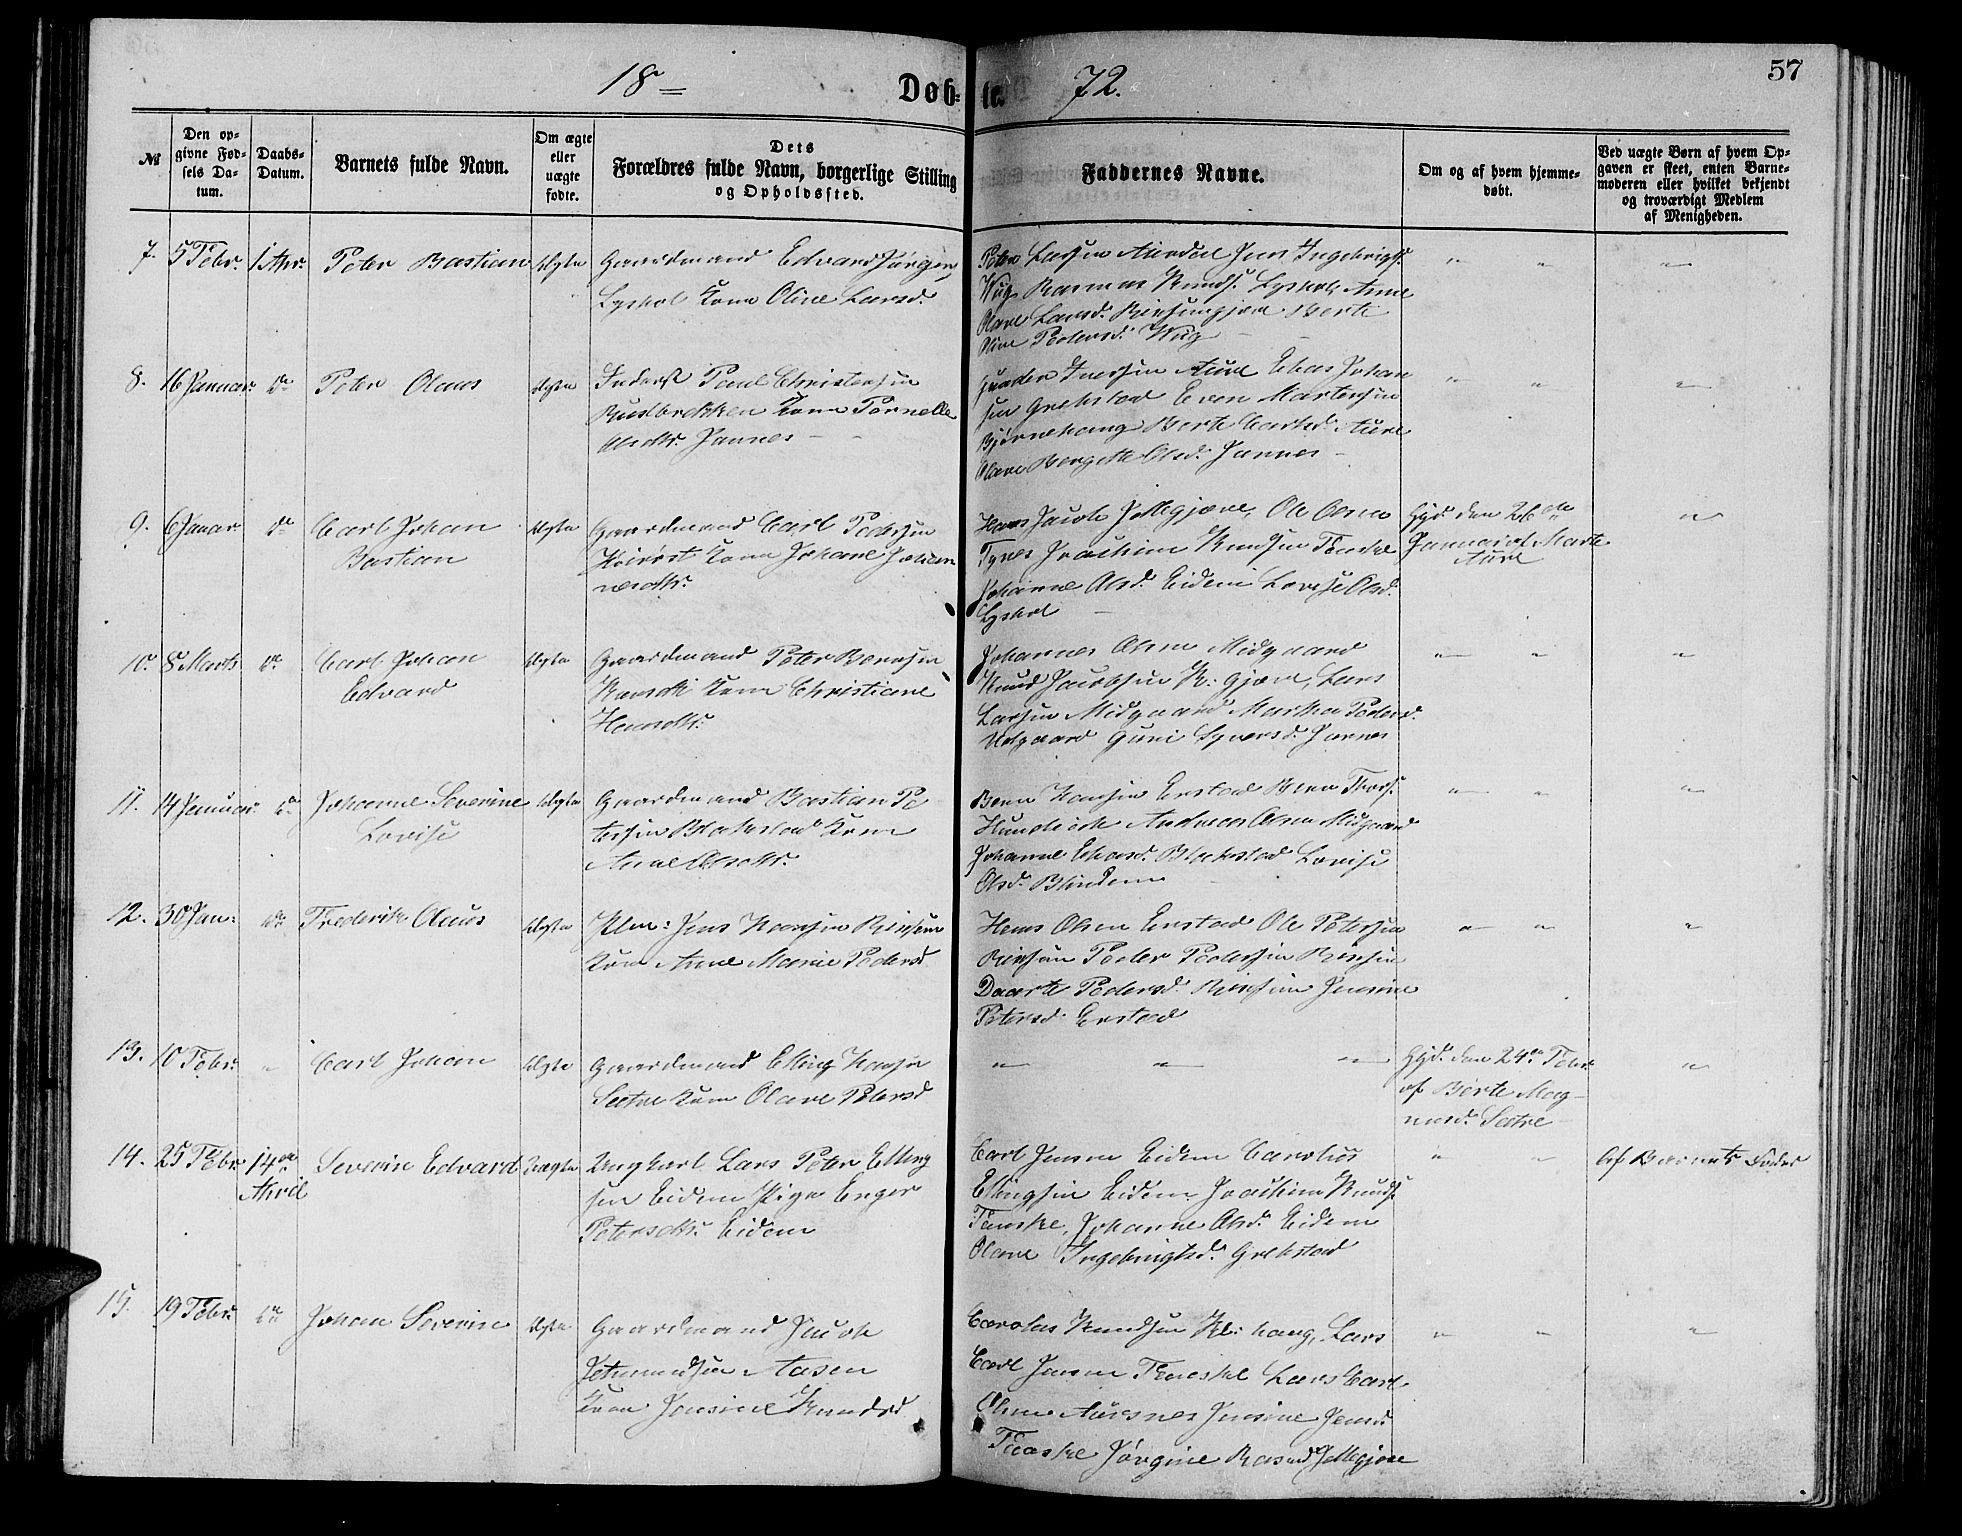 18 72.
Døb- te.
57
№
Den op-
givne Fød-
sels Da-
tum.
Daabs-
Datum.
Barnets fulde Navn.
Om ægte
eller
uægte
fødte.
Dets
Forældres fulde Navn, borgerlige Stilling
og Opholdssted.
Faddernes Navne.
Om og af hvem hjemme-
døbt.
Ved uægte Børn af hvem Op-
gaven er skeet, enten Barne-
moderen eller hvilket bekjendt
og troværdigt Medlem
af Menigheden.
7. 5 Febr. 1 Apr. Peter Bastian Ægte
Gaardmand Edvard Jørgens
Lyshol Kone Oline Larsd.
Peter Larsen Aurdal Jens Ingebrigts.
Wug Rasmus Knuds. Lyshol, Anne
Olave Larsd. Berte
Oline Pedersd. Wug
8. 16 Januar do Peter Olaus Ægte
Inderst Paul Christensen
Kone Pernelle
Olsdtr. Jarnes
Iversen Aure Elias Johan
sen Grebstad Even Martensen
Bjørnehaug Berte Aure
Olave Bergitte Olsd. Jarnes
9. 6 Januar do Carl Johan
Bastian
Ægte
Gaardmand Carl Pedersen
Kone Johane Johan
nesdtr.
Hans Jacob Jelle­gjære, Ole Olsen
Tynes Joachim Knudsen Fenske
Johanne Olsd. Eidem Lovise Olsd.
Lyshol
Hjd. den 26de
Januar af Marte
Aure
10. 8 Marts do Carl Johan
Edvard
Ægte
Gaardmand Peter Berntsen
Kone Christiane
Hansdtr.
Johannes Olsen Midgaard
Knud Jacobsen K. gjære, Lars
Larsen Midgaard Martha Peders.
Guri Syversd. Jarnes
11. 14 Januar do Johanne Severine
Lovise
Ægte
Gaardmand Bastian Pe
tersen Blakstad Kone
Anne Olsdtr.
Bern Hansen Erstad Bern Thors.
Andreas Olsen Midgaard
Johanne Eliasd. Blakstad Lovise
Olsd. Blindem
12. 30 Jan: do Frederik Olaus Ægte
Jens Hansen
Kone Anne Marie Pedersd
Hans Olsen Erstad Ole Petersen
Peder Pedersen
Pedersd. Jensine
Petersd. Erstad
13. 10 Febr. Carl Johan Ægte
Gaardmand Elling Hansen
Sætre Kone Olave Petersd
Hjd. den 24de Febr.
af Berte Mag-
nusd. Sætre
14. 25 Febr. 14de
April
Severin Edvard Uægte
Ungkarl Lars Peter Elling
sen Eidem Pige Enger
Petersdtr. Eidem
Carl Jensen Eidem Carolus
Ellingsen Eidem, Joachim Knuds.
Fenske, Johanne Olsd. Eidem
Olave Ingebrigtsd. Grebstad
Af Barnets Fader
15. 19 Febr. do Johan Severin Ægte
Gaardmand Jacob
Aasen
Kone Jensine Knudsd
Carolus Knudsen Kl: haug, Lars
Carl Jensen Fenske Lars Carl
Olsen Aursnes Jensine Jensd
Fenske Jørgine Rasmd Jellegjære